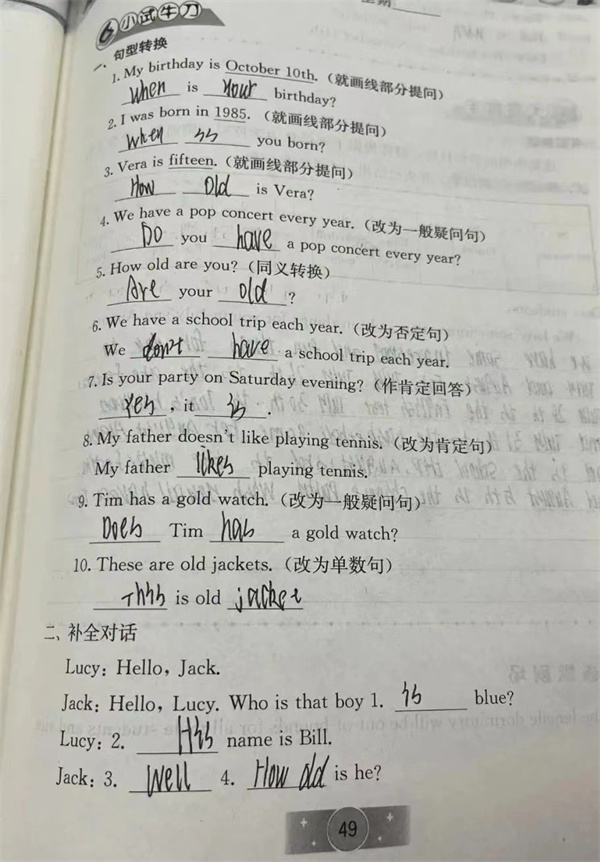 6 小试牛刀
一、句型转换
1. My birthday is October 10th.（就画线部分提问）
When is your birthday?
2. I was born in 1985.（就画线部分提问）
When is you born?
3. Vera is fifteen.（就画线部分提问）
How old is Vera?
4. We have a pop concert every year.（改为一般疑问句）
Do you have a pop concert every year?
5. How old are you?（同义转换）
Are your old ?
6. We have a school trip each year.（改为否定句）
We don't have a school trip each year.
7. Is your party on Saturday evening?（作肯定回答）
Yes , it is .
8. My father doesn't like playing tennis.（改为肯定句）
My father likes playing tennis.
9. Tim has a gold watch.（改为一般疑问句）
Does Tim has a gold watch?
10. These are old jackets.（改为单数句）
This is old jacket
二、补全对话
Lucy: Hello, Jack.
Jack: Hello, Lucy. Who is that boy 1. is blue?
Lucy: 2. His name is Bill.
Jack: 3. Well 4. How old is he?
49